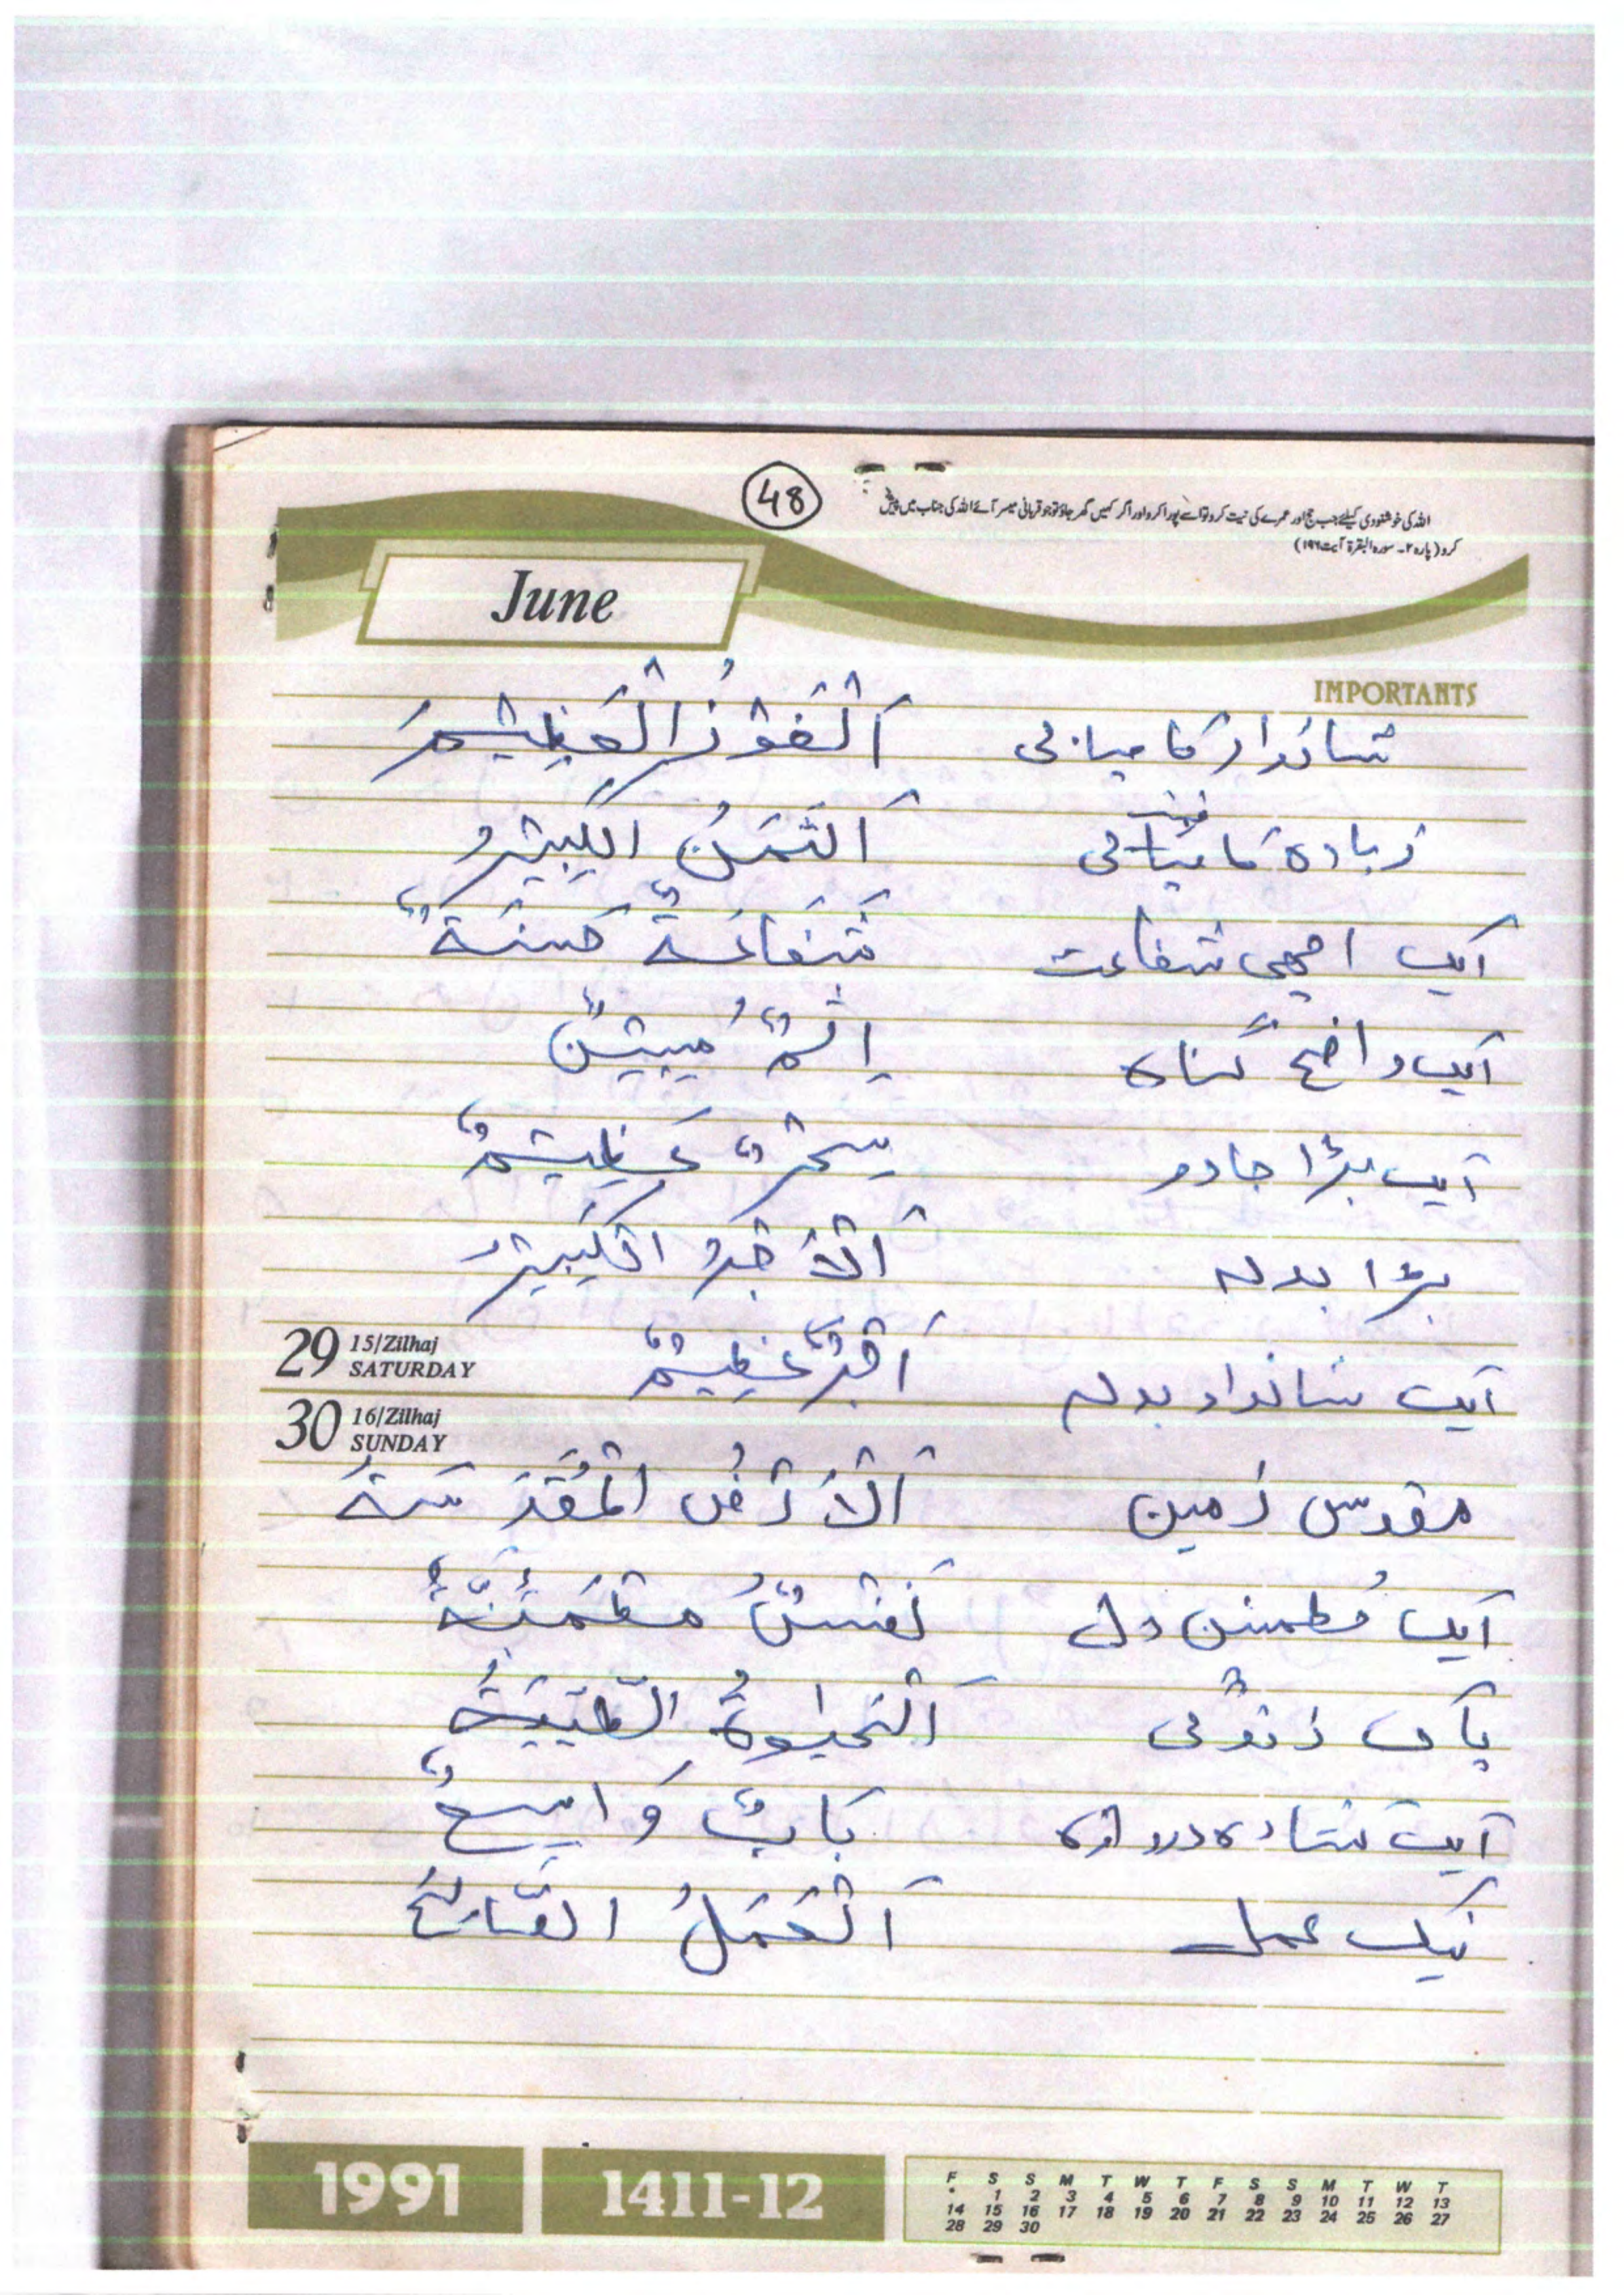 48
اللہ کی خوشنودی کیلئے جب حج اور عمرے کی نیت کرو تو اسے پورا کرو اور اگر کہیں گھر جاؤ تو جو قربانی میسر آئے اللہ کی جناب میں پیش
کرو (پارہ ۲۔ سورہ البقرۃ آیت ۱۹۶)
June
IMPORTANTS
شاندار کامیابی اَلْفَوْزُ الْعَظِيْمُ
زیادہ قیمت اَلثَّمَنُ الکَبِيْرُ
ایک اچھی شفاعت شَفَاعَةٌ حَسَنَةٌ
ایک واضح گناہ اِثْمٌ مُبِيْنٌ
ایک بڑا جادو سِحْرٌ عَظِيْمٌ
بڑا بدلہ اَلْاَجْرُ الْکَبِيْرُ
ایک شاندار بدلہ اَجْرٌ عَظِيْمٌ
29 15/Zilhaj SATURDAY
30 16/Zilhaj SUNDAY
مقدس زمین اَلْاَرْضُ الْمُقَدَّسَةُ
ایک مُطمئن دل نَفْسٌ مُطْمَئِنَّةٌ
پاک زندگی اَلْحَيٰوةُ الطَّيِّبَةُ
ایک کشادہ دروازہ بَابٌ وَاسِعٌ
نیک عمل اَلْعَمَلُ الصَّالِحُ
1991 1411-12
F S S M T W T F S S M T W T
* 1 2 3 4 5 6 7 8 9 10 11 12 13
14 15 16 17 18 19 20 21 22 23 24 25 26 27
28 29 30